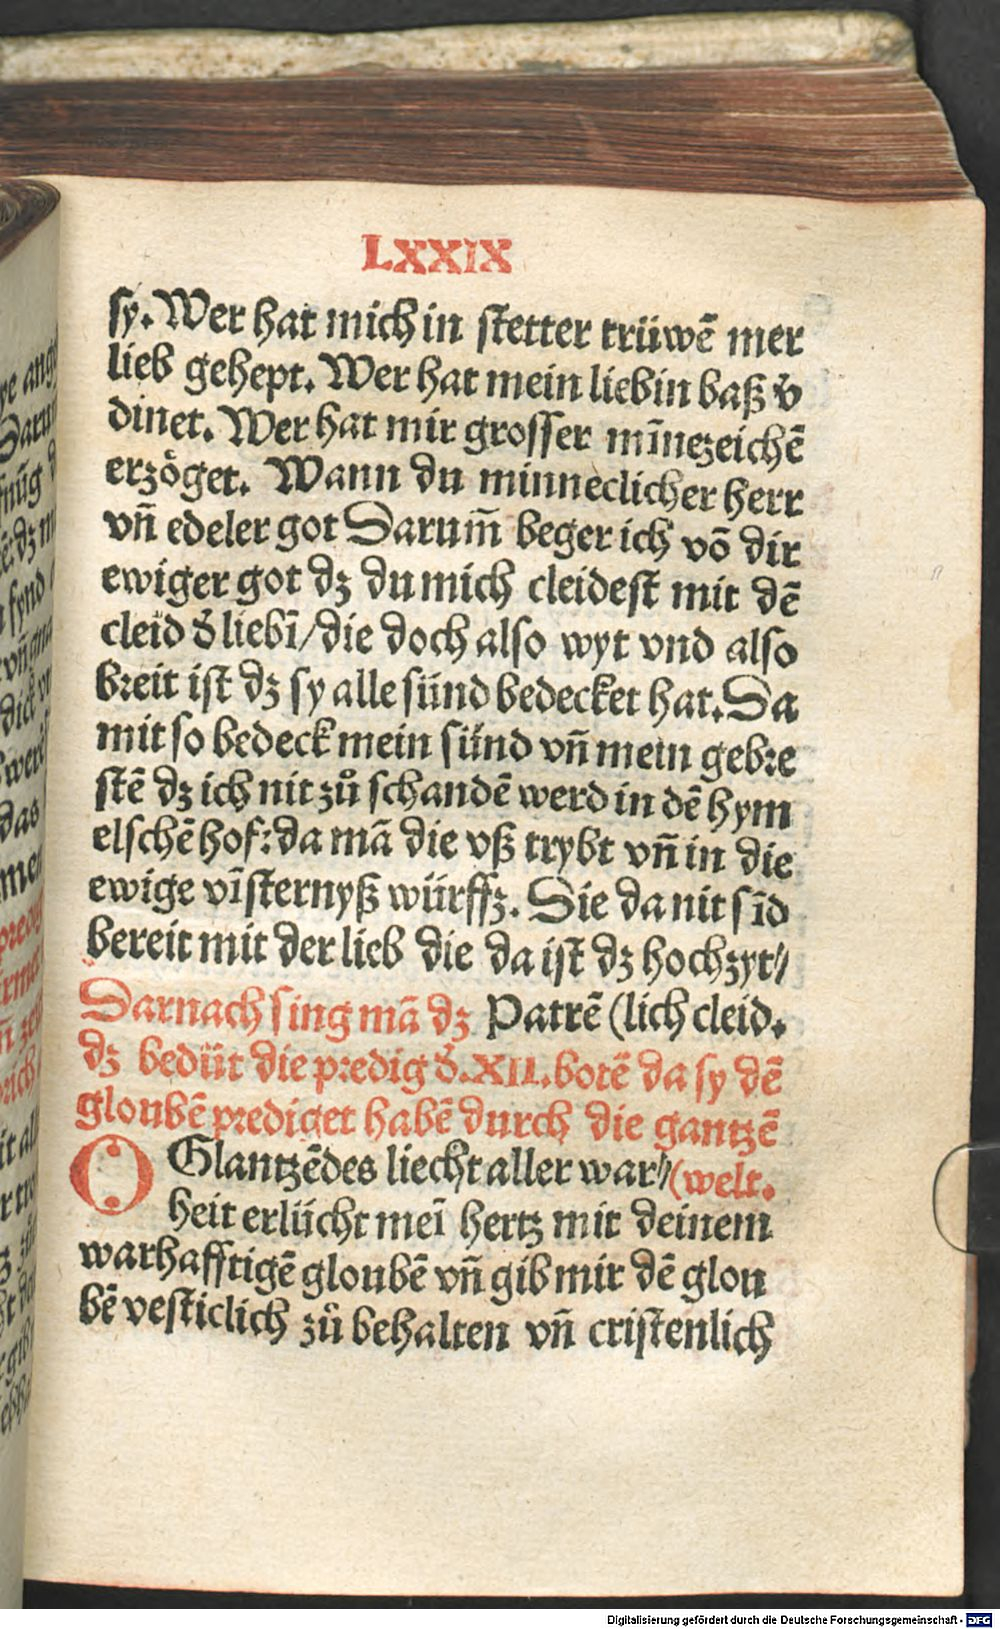 LXXIX
sy. Wer hat mich in stetter trüwē mer
lieb gehept. Wer hat mein liebin baß v̄
dinet. Wer hat mir grosser mīnezeichē
erzöget. Wann du minneclicher herr
vn̄ edeler got Darum̄ beger ich vō dir
ewiger got dz du mich cleidest mit dē
cleid d̄ liebī/die doch also wyt vnd also
breit ist dz sy alle sünd bedecket hat. Da
mit so bedeck mein sünd vn̄ mein gebre
stē dz ich nit zů schandē werd in dē hym
elschē hof: da mā die vß trybt vn̄ in die
ewige vīsternyß würffz. Die da nit sīd
bereit mit der lieb die da ist dz hochzyt//
Darnach sing mā dz Patrē (lich cleid.
dz bedüt die predig d̄. XII. botē da sy dē
gloubē prediget habē durch die gantzē
O Glantzēdes liecht aller war//(welt.
heit erlücht meī hertz mit deinem
warhafftigē gloubē vn̄ gib mir dē glou
bē vesticlich zů behalten vn̄ cristenlich
Digitalisierung gefördert durch die Deutsche Forschungsgemeinschaft - DFG